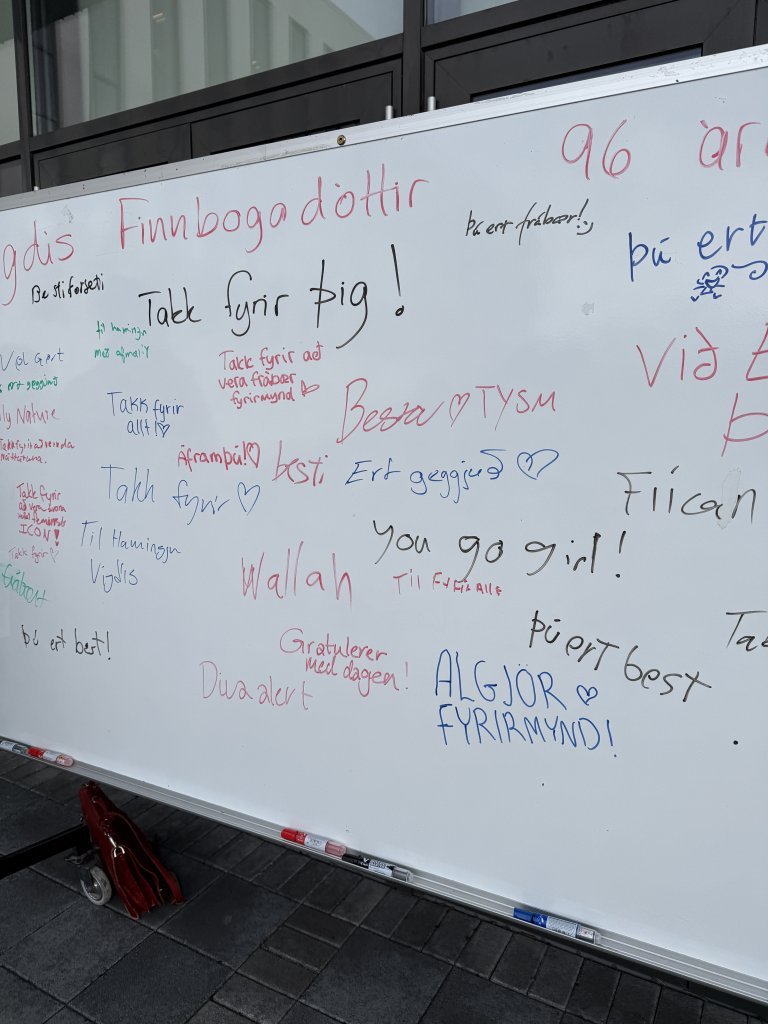 gdís Finnbogadóttir
96 ár
Þú ert frábær!
Þú ert
Besti forseti
Takk fyrir þig!
til hamingju
með afmælið
Vel Gert
ert geggjuð
Takk fyrir að
vera frábær
fyrirmynd
Við E
Þ
ly Nature
Takk fyrir
allt!
Besta TYSM
Takk fyrir að vernda
náttúruna.
Áfram þú!
besti
Ert geggjuð
Takk fyrir
Takk
fyrir
að vera
ICON!
Takk fyrir
Fíican
Til Hamingju
Vigdís
you go girl!
Wallah
Til Fyrir Alle
frábær
Þú ert best!
Þú ert best
Tak
Gratulerer
med dagen!
Diva alert
ALGJÖR
FYRIRMYND!